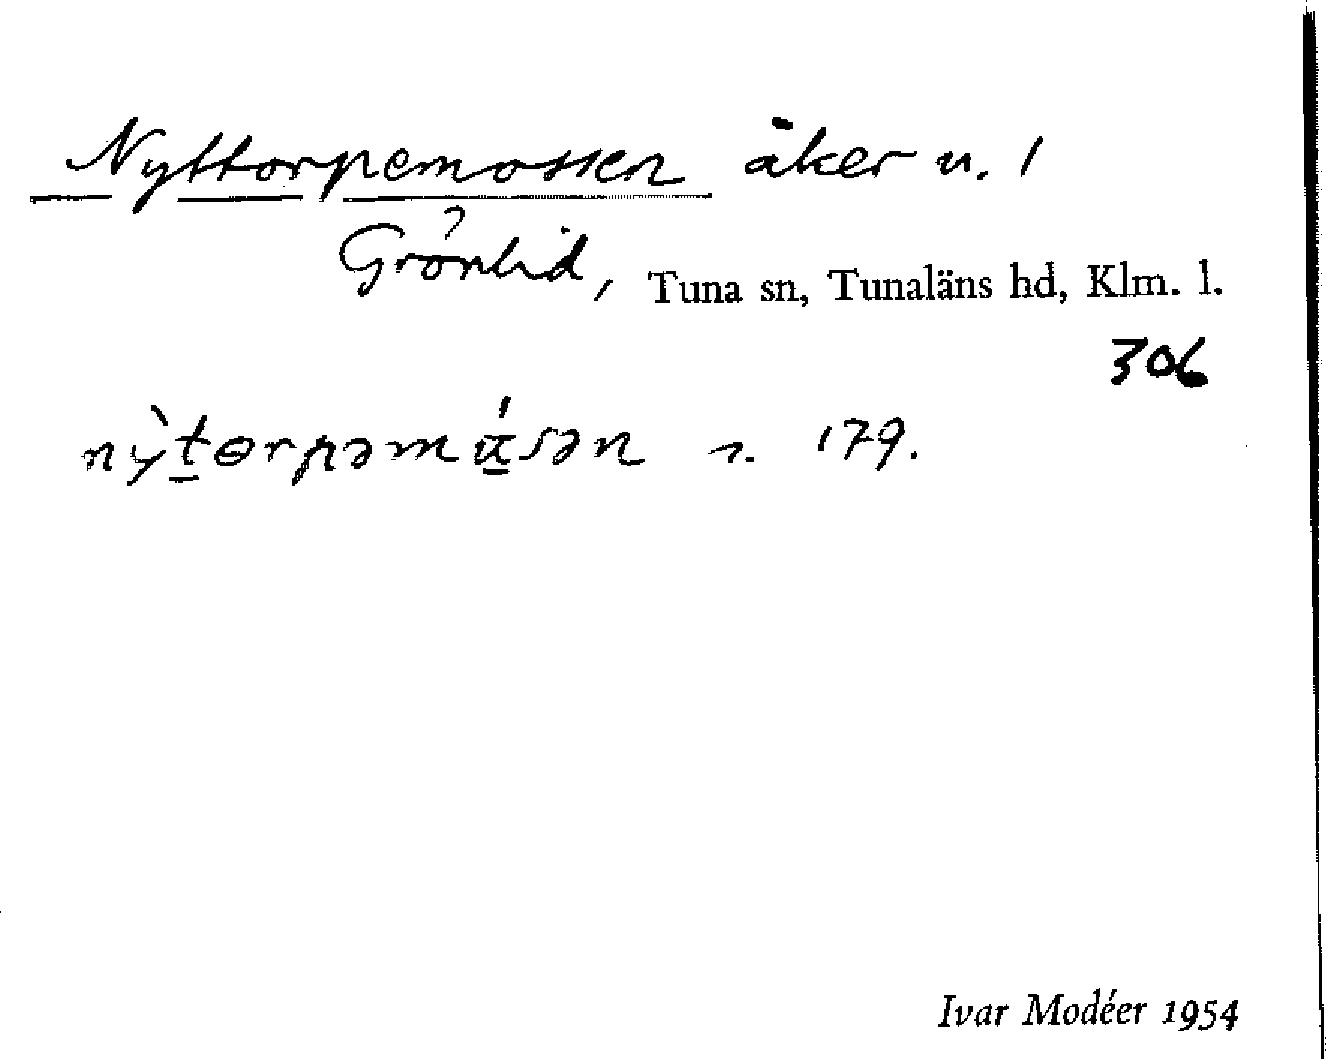 Nyttorpemossen åker u. 1
Grönlid, Tuna sn, Tunaläns hd, Klm. l.
306
nỳt̲ɵrpəmá̲sən n. 179.
Ivar Modéer 1954